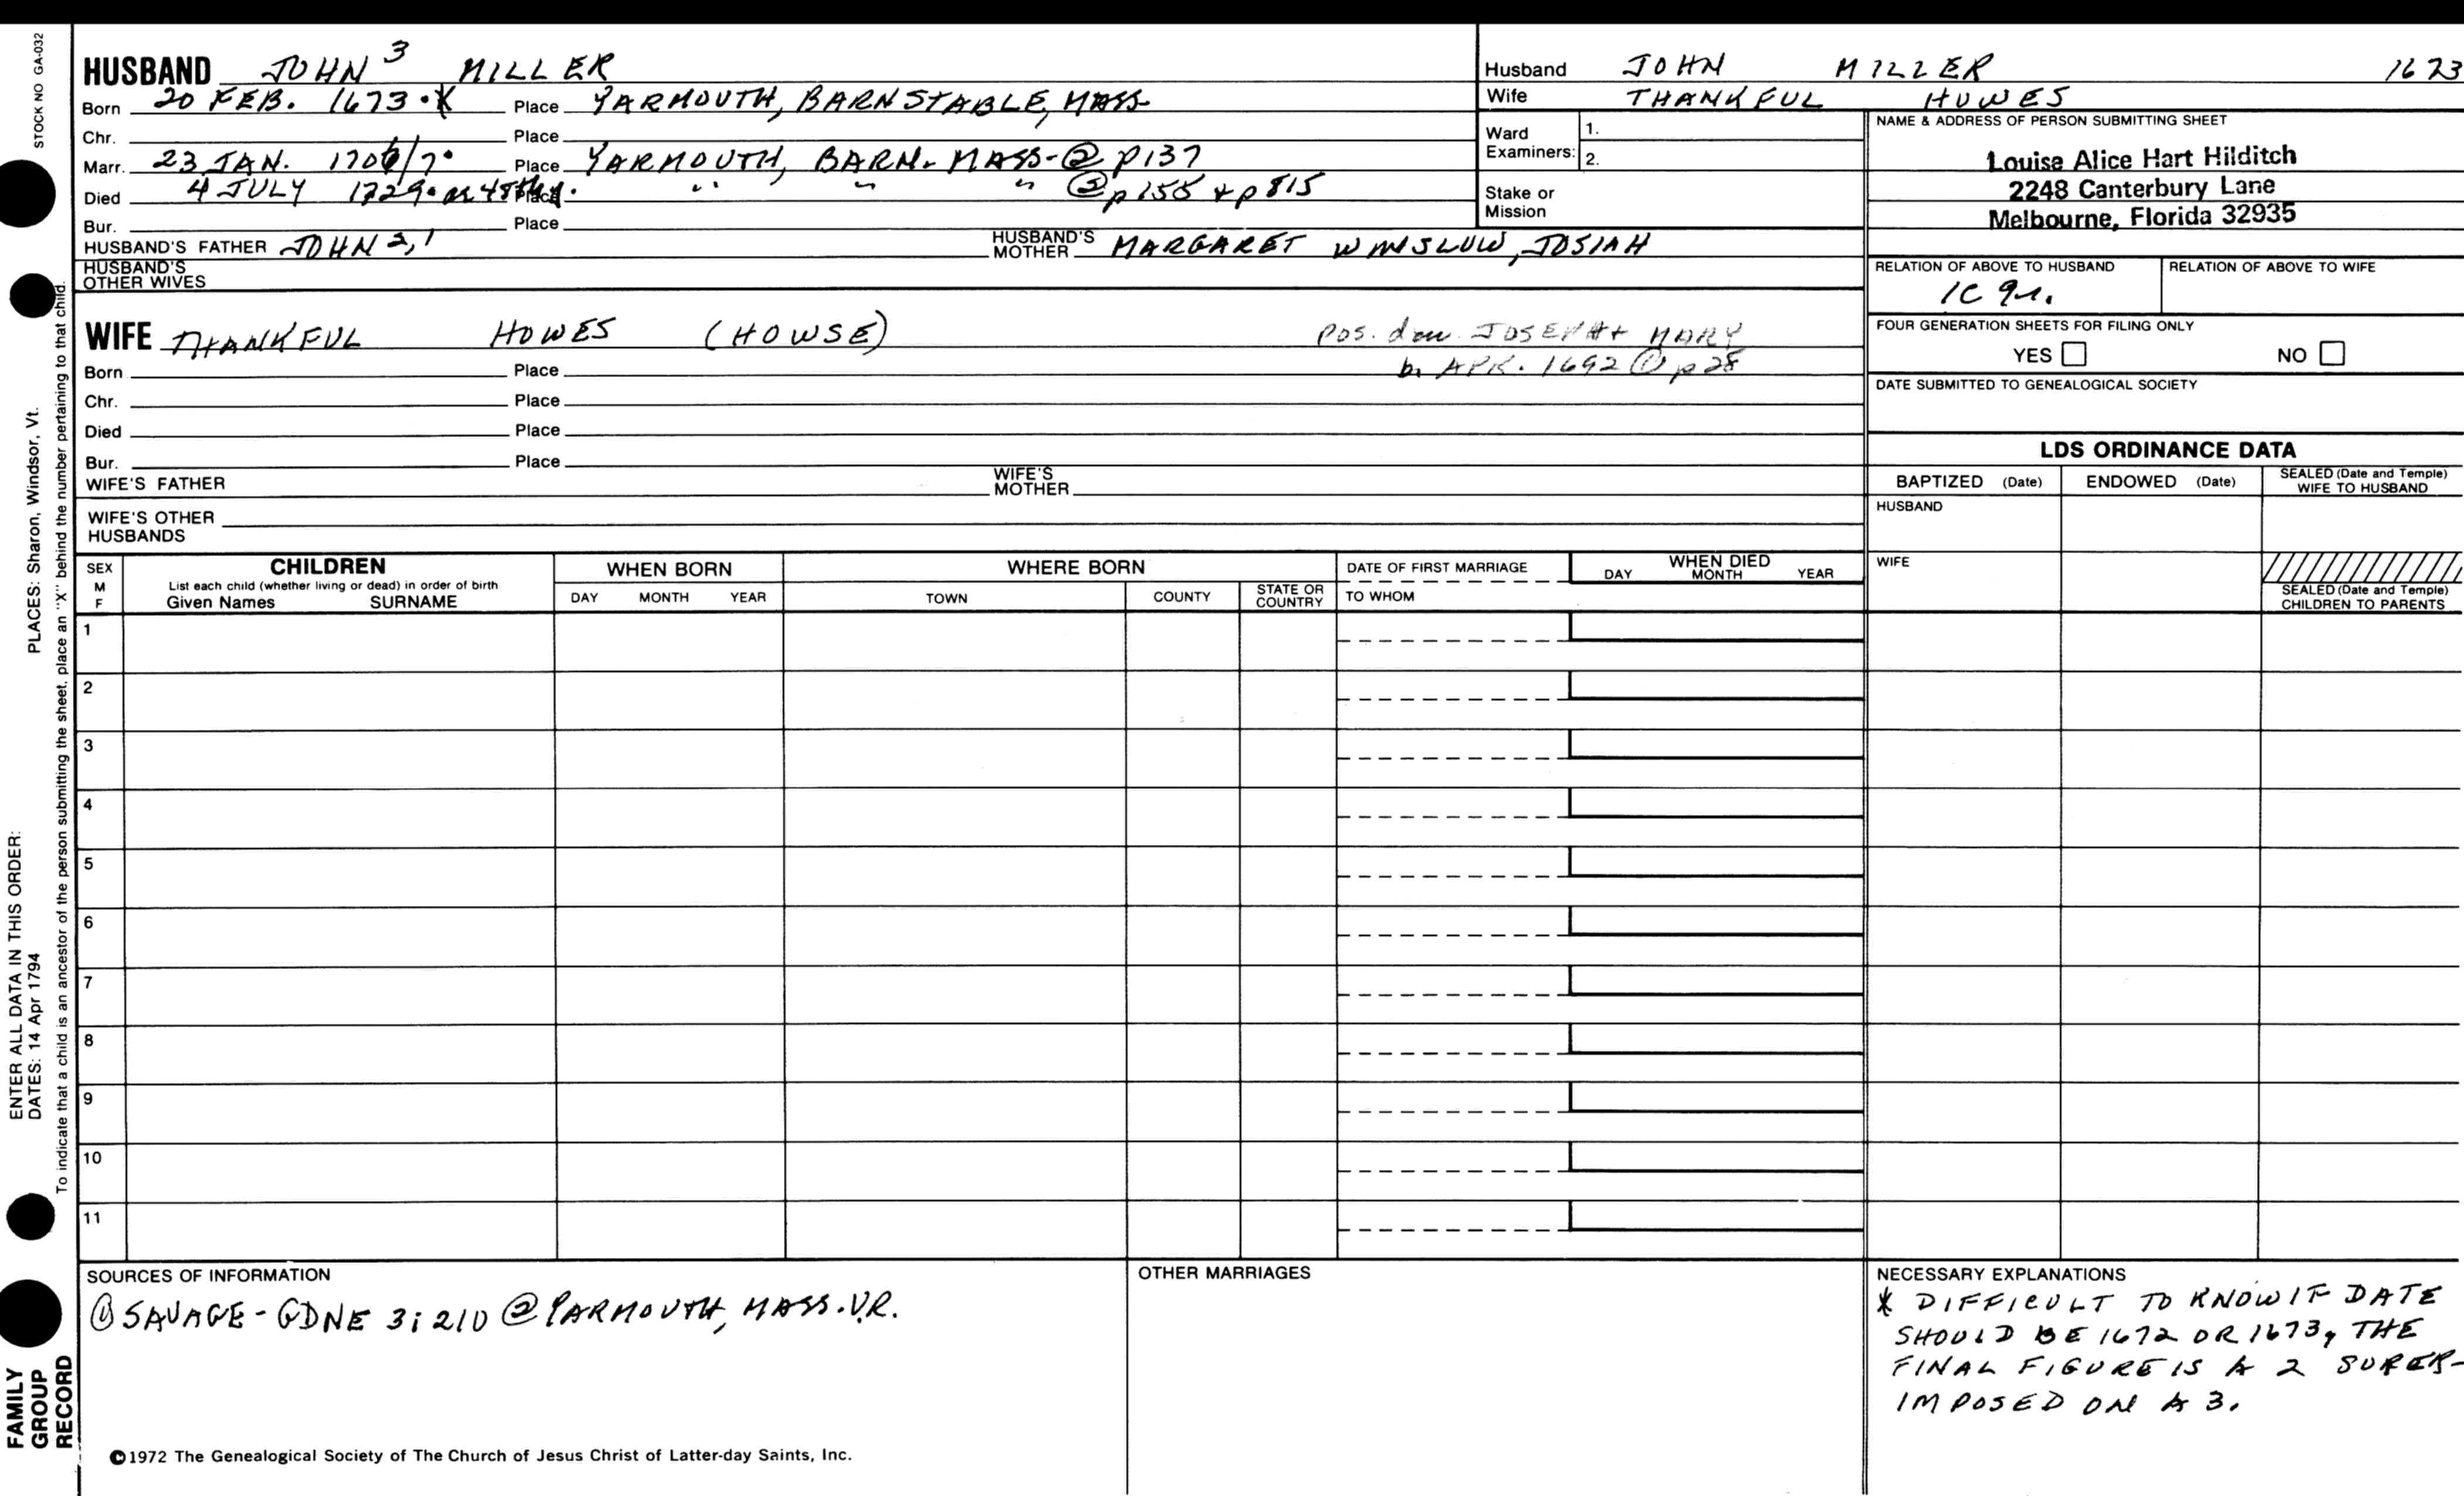 STOCK NO GA-032
HUSBAND JOHN 3 MILLER
Born 20 FEB. 1673 * Place YARMOUTH, BARNSTABLE, MASS
Chr. Place
Marr. 23 JAN. 1706/7 Place YARMOUTH, BARN. MASS-② p137
Died 4 JULY 1729 or Place " " " ② p155 + p815
Bur. Place
HUSBAND'S FATHER JOHN 2,1 HUSBAND'S MOTHER MARGARET WINSLOW, JOSIAH
HUSBAND'S OTHER WIVES
WIFE THANKFUL HOWES (HOWSE) pos. dau. JOSEPH + MARY
b. APR. 1692 ① p28
Born Place
Chr. Place
Died Place
Bur. Place
WIFE'S FATHER WIFE'S MOTHER
WIFE'S OTHER HUSBANDS
Husband JOHN MILLER 1673
Wife THANKFUL HOWES
Ward Examiners: 1.
2.
Stake or Mission
NAME & ADDRESS OF PERSON SUBMITTING SHEET
Louise Alice Hart Hilditch
2248 Canterbury Lane
Melbourne, Florida 32935
RELATION OF ABOVE TO HUSBAND RELATION OF ABOVE TO WIFE
1C 9r.
FOUR GENERATION SHEETS FOR FILING ONLY
YES NO
DATE SUBMITTED TO GENEALOGICAL SOCIETY
LDS ORDINANCE DATA
BAPTIZED (Date) ENDOWED (Date) SEALED (Date and Temple) WIFE TO HUSBAND
HUSBAND
WIFE
SEALED (Date and Temple) CHILDREN TO PARENTS
SEX M F
CHILDREN
List each child (whether living or dead) in order of birth
Given Names SURNAME
WHEN BORN
DAY MONTH YEAR
WHERE BORN
TOWN COUNTY STATE OR COUNTRY
DATE OF FIRST MARRIAGE
TO WHOM
WHEN DIED
DAY MONTH YEAR
1
2
3
4
5
6
7
8
9
10
11
SOURCES OF INFORMATION
① SAVAGE - GDNE 3; 210 ② YARMOUTH, MASS. V.R.
OTHER MARRIAGES
NECESSARY EXPLANATIONS
* DIFFICULT TO KNOW IF DATE
SHOULD BE 1672 OR 1673, THE
FINAL FIGURE IS A 2 SUPER-
IMPOSED ON A 3.
©1972 The Genealogical Society of The Church of Jesus Christ of Latter-day Saints, Inc.
FAMILY
GROUP
RECORD
ENTER ALL DATA IN THIS ORDER:
DATES: 14 Apr 1794
PLACES: Sharon, Windsor, Vt.
To indicate that a child is an ancestor of the person submitting the sheet, place an "X" behind the number pertaining to that child.